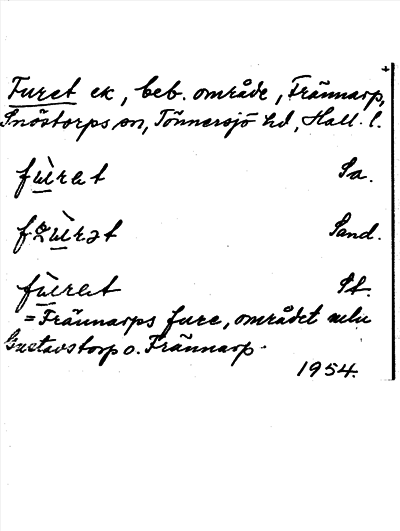 Furet ek, beb. område, Frännarp,
Snöstorps sn, Tönnersjö hd, Hall. l.
fùrət Sa.
fɤùrət Sand.
fùrət St.
= Frännarps fure, området mellu
Gustavstorp o. Frännarp.
1954.